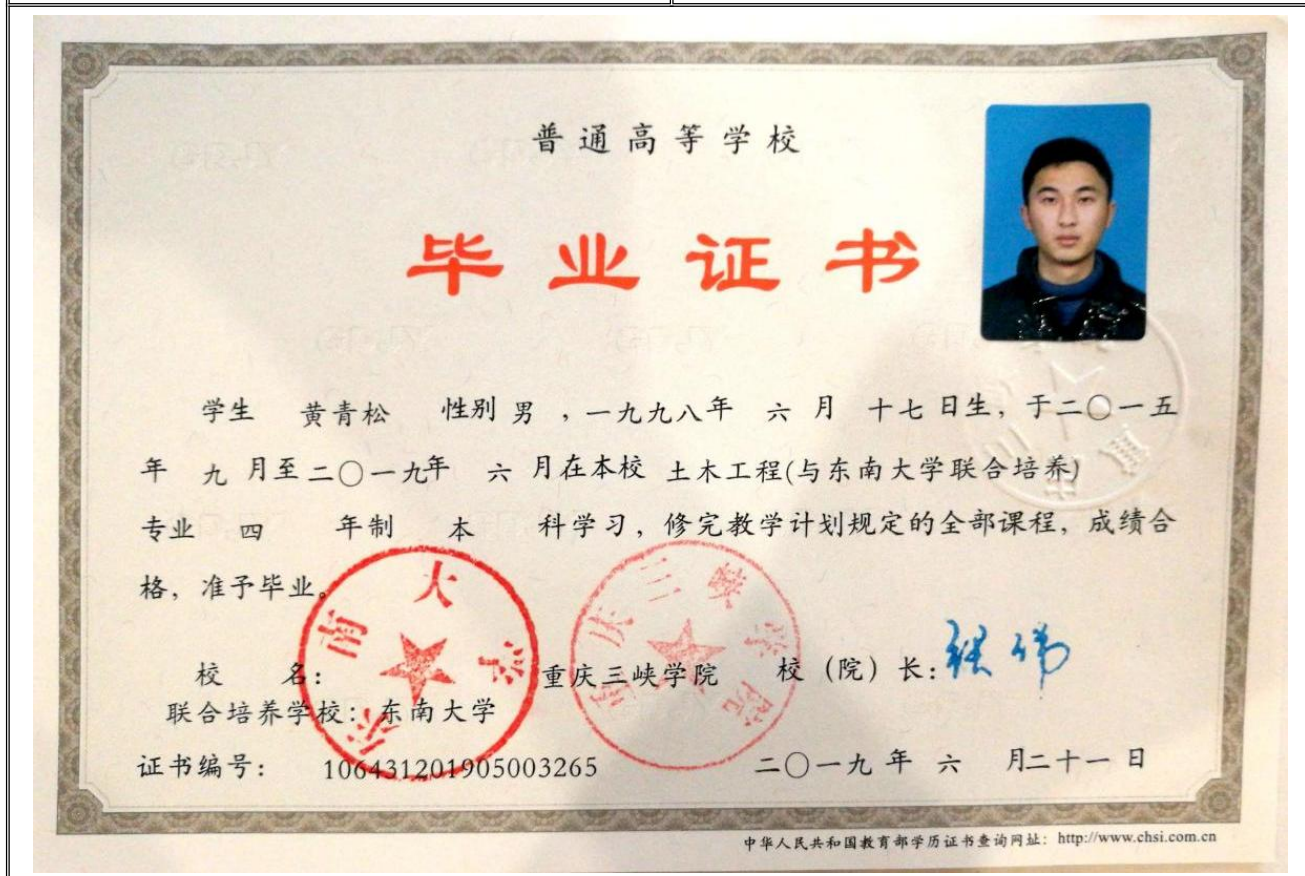 普通高等学校
毕业证书
学生 黄青松 性别 男 ，一九九八年 六 月 十七 日生，于二〇一五
年 九 月至二〇一九年 六 月在本校 土木工程(与东南大学联合培养)
专业 四 年制 本 科学习，修完教学计划规定的全部课程，成绩合
格，准予毕业。
东南大学
重庆三峡学院
校 名： 重庆三峡学院 校（院）长：
联合培养学校：东南大学
证书编号： 106431201905003265 二〇一九 年 六 月二十一 日
中华人民共和国教育部学历证书查询网址：http://www.chsi.com.cn